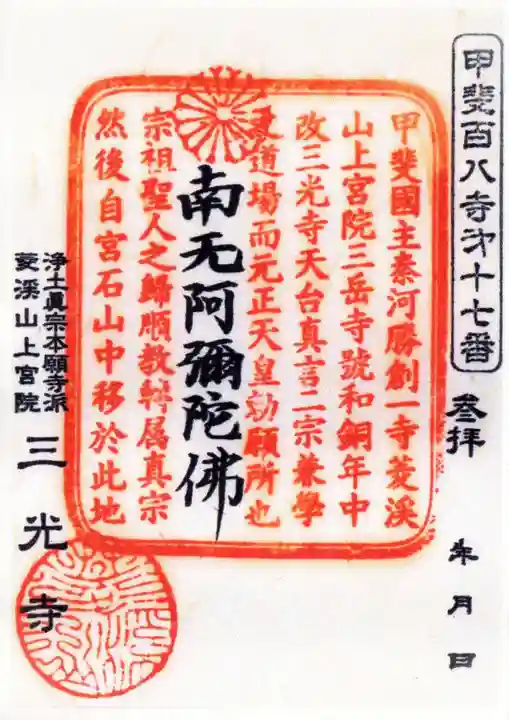 甲斐百八寺才十七番
参拝　年　月　日
甲斐國主秦河勝創一寺菱溪
山上宮院三岳寺號和銅年中
改三光寺天台真言二宗兼學
道場而元正天皇勅願所也
南无阿彌陀佛
宗祖聖人之歸順教轉属真宗
然後自宮石山中移於此地
浄土眞宗本願寺派
菱溪山上宮院
三光寺